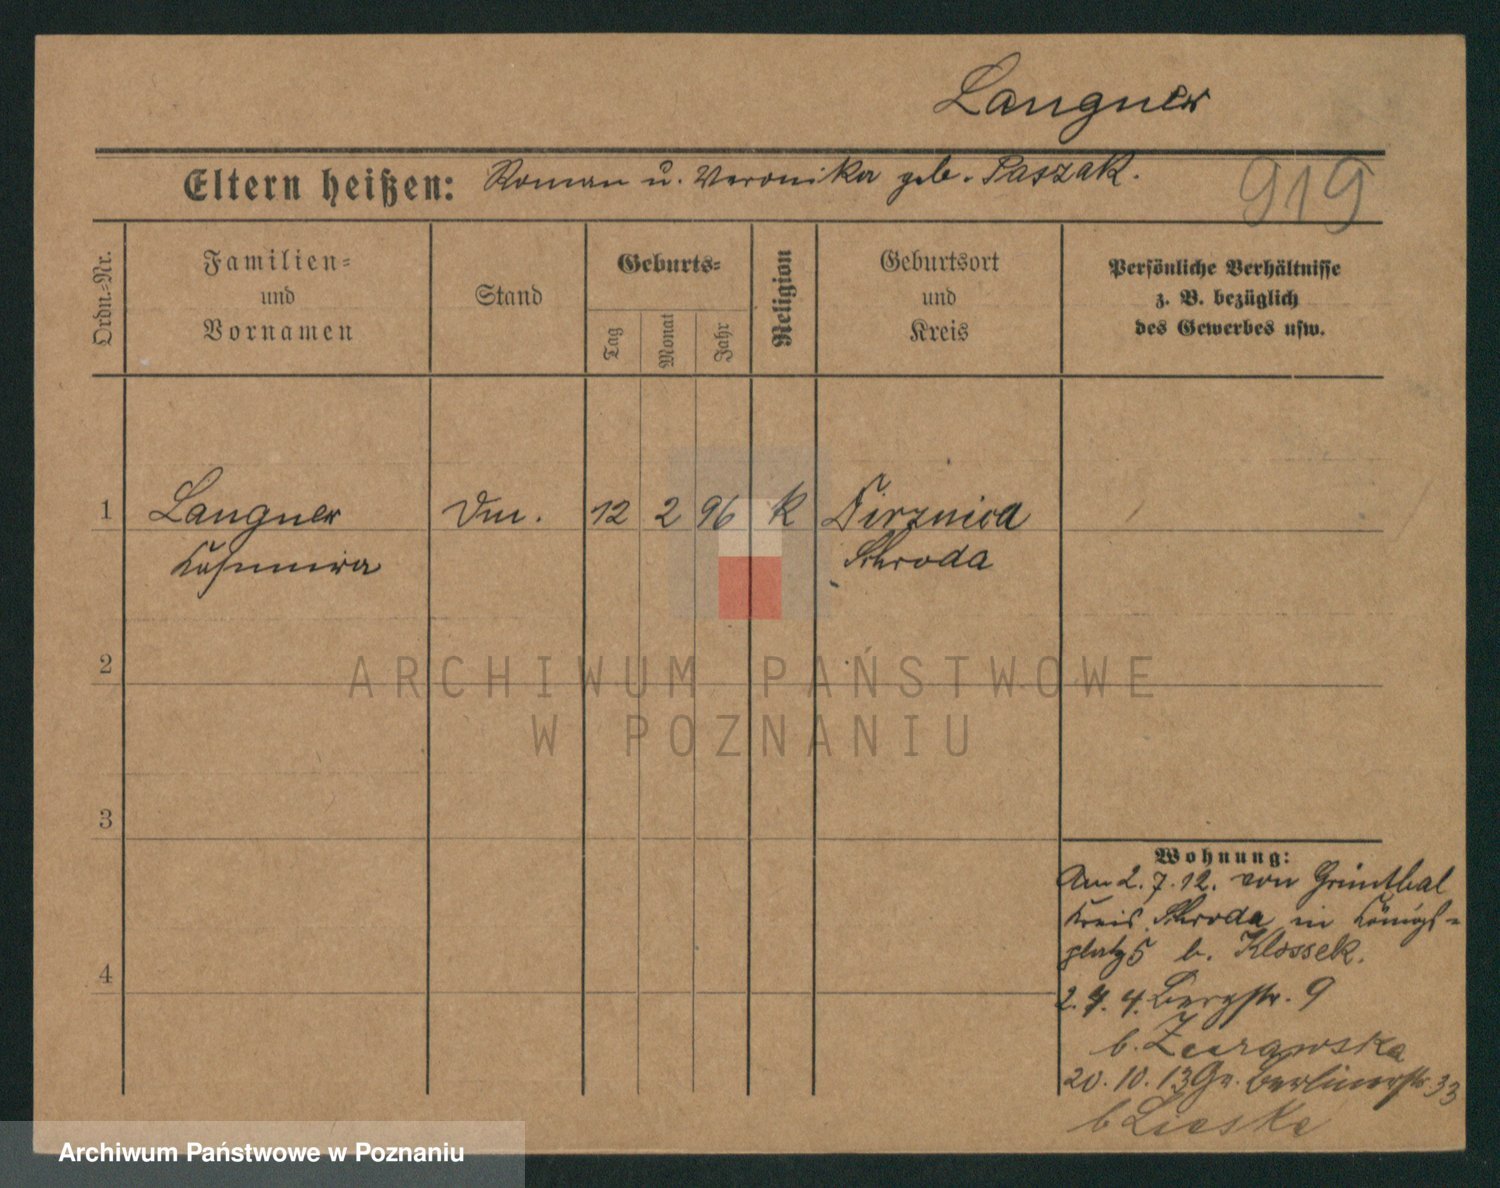 Langner
Eltern heißen: Roman u. Veronika geb. Paszak.
919
Ordn.-Nr.
Familien-
und
Vornamen
Stand
Geburts-
Tag
Monat
Jahr
Religion
Geburtsort
und
Kreis
Persönliche Verhältnisse
z. B. bezüglich
des Gewerbes usw.
1 Langner 12 2 96 k
Kasimira Schroda
2
3
4
Wohnung:
Am 2. 7. 12. von Grünthal
Kreis Schroda in Königs-
platz 5 b. Klossek.
Bergstr. 9
b. Zurawska
20. 10. 13 Gr. Berlinerstr. 33
b Lieske
ARCHIWUM PAŃSTWOWE
W POZNANIU
Archiwum Państwowe w Poznaniu